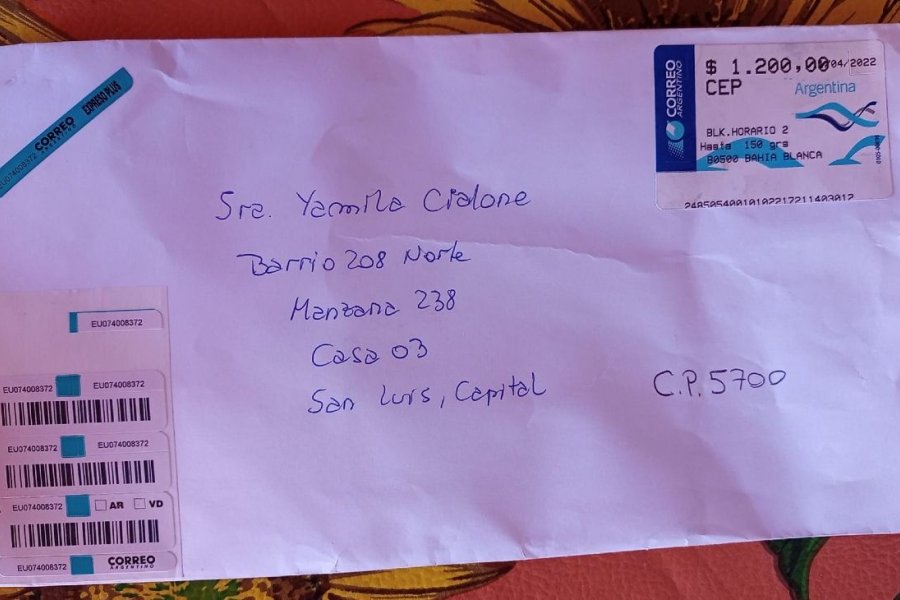 CORREO ARGENTINO
$ 1.200,00
04/2022
CEP
Argentina
BLK.HORARIO 2
Hasta 150 grs
B0500 BAHIA BLANCA
2485054001010221721140301​2
EU074008372 CORREO EXPRESO PLUS
Sra. Yamila Cialone
Barrio 208 Norte
Manzana 238
Casa 03
San Luis, Capital
C.P. 5700
EU074008372
EU074008372 EU074008372
EU074008372 EU074008372
EU074008372 AR VD
EU074008372 CORREO ARGENTINO